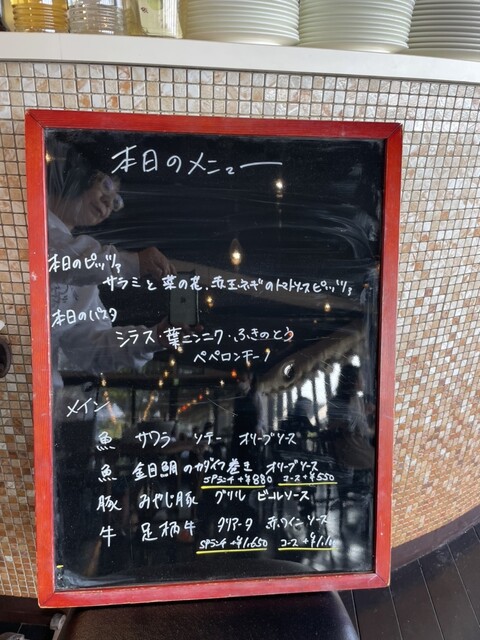 本日のメニュー
本日のピッツァ
サラミと菜の花、赤玉ネギのトマトソースピッツァ
本日のパスタ
シラス・葉ニンニク・ふきのとう
ペペロンチーノ
メイン
魚 サワラ ソテー オリーブソース
魚 金目鯛のカダイフ巻き オリーブソース
SPランチ+¥880 コース+¥550
豚 みやじ豚 グリル ビールソース
牛 足柄牛 タリアータ 赤ワインソース
SPランチ+¥1,650 コース